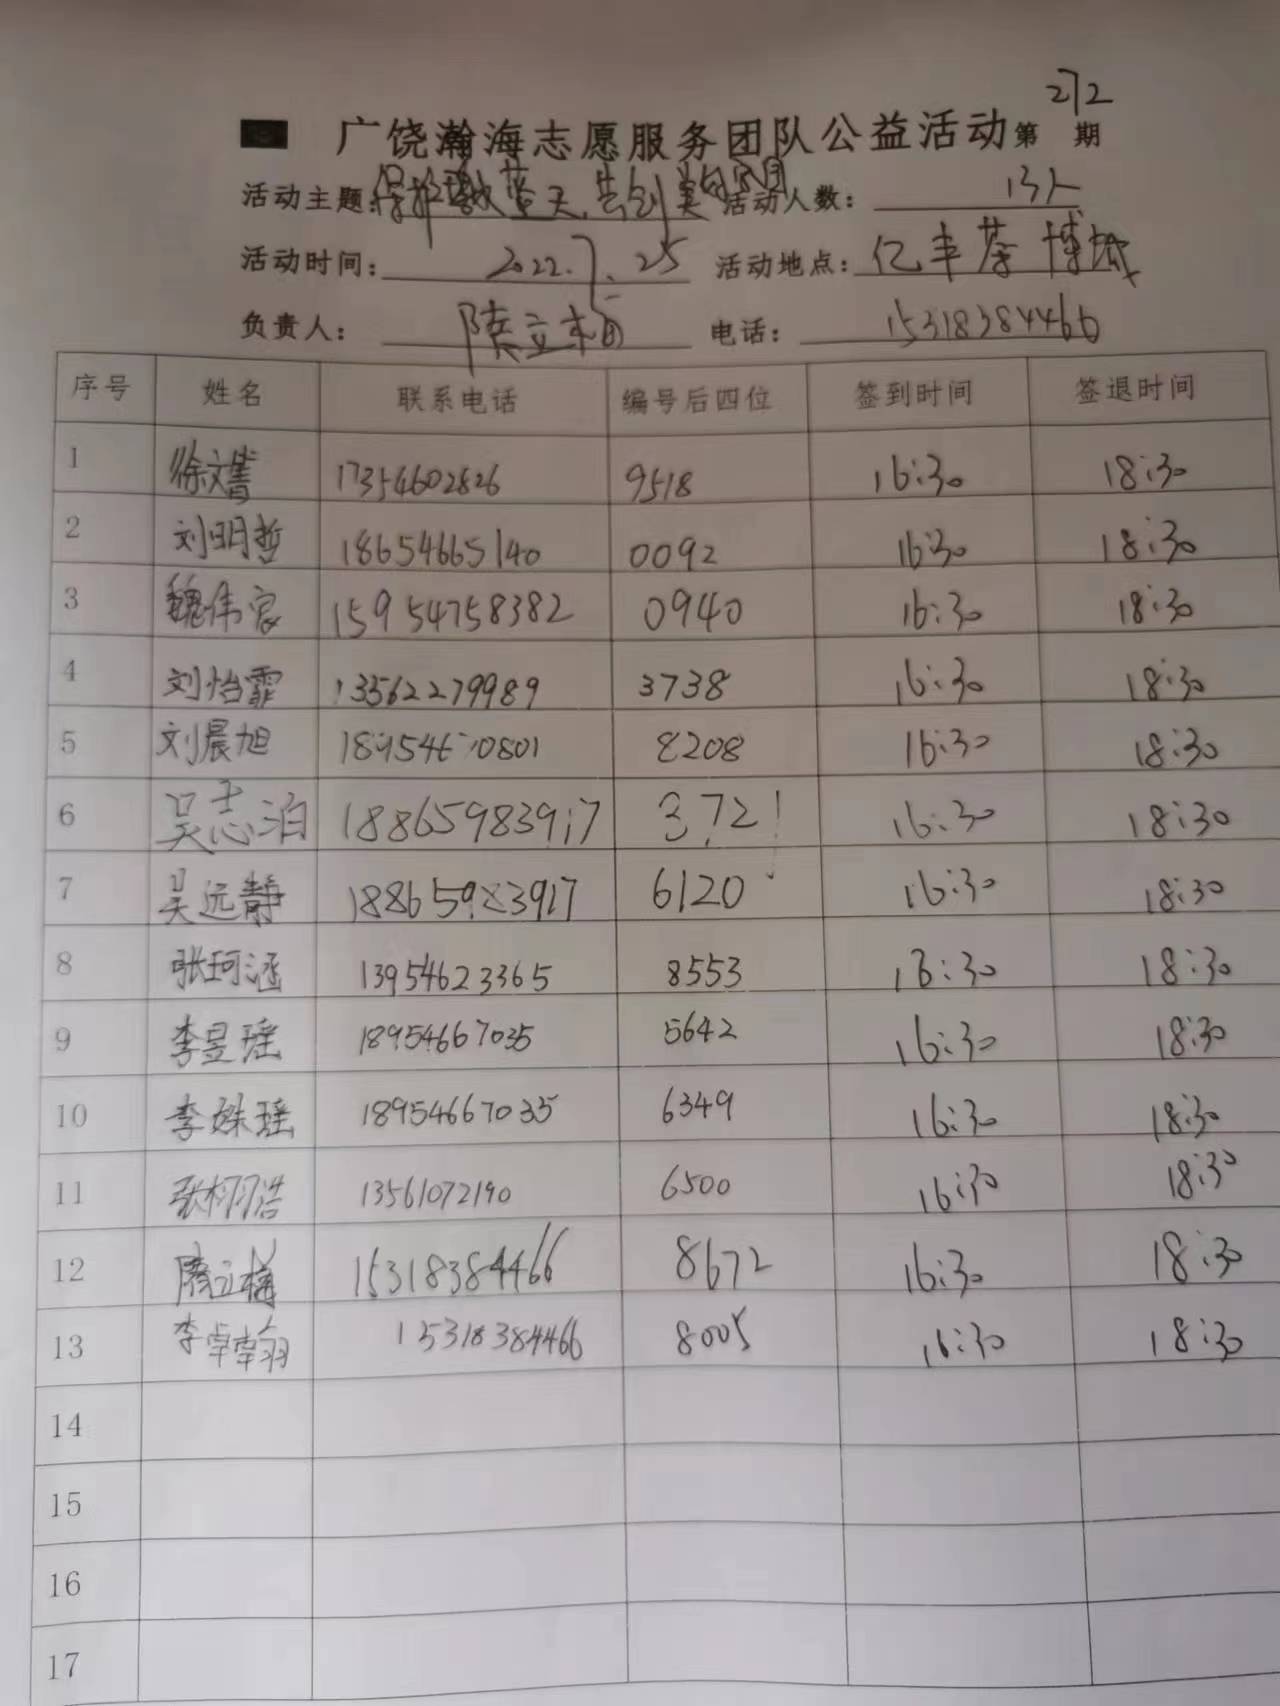 272
广饶瀚海志愿服务团队公益活动第 期
活动主题: 蓝天,共创美 活动人数: 13人
活动时间: 2022.7.25 活动地点: 亿丰茶博城
负责人: 立 电话: 15318384466
序号 姓名 联系电话 编号后四位 签到时间 签退时间
1 徐文菁 17354602826 9518 16:30 18:30
2 刘明哲 18654665140 0092 16:30 18:30
3 魏伟宸 15954758382 0940 16:30 18:30
4 刘怡霏 13562279989 3738 16:30 18:30
5 刘晨旭 8208 16:30 18:30
6 吴志泊 18865983917 3721 16:30 18:30
7 吴远静 18865983917 6120 16:30 18:30
8 张珂涵 13954623365 8553 16:30 18:30
9 李昱瑶 18954667035 5642 16:30 18:30
10 李姝瑶 18954667035 6349 16:30 18:30
11 张栩浩 13561072190 6500 16:30 18:30
12 立 15318384466 8672 16:30 18:30
13 李卓翰 15318384466 8005 16:30 18:30
14
15
16
17